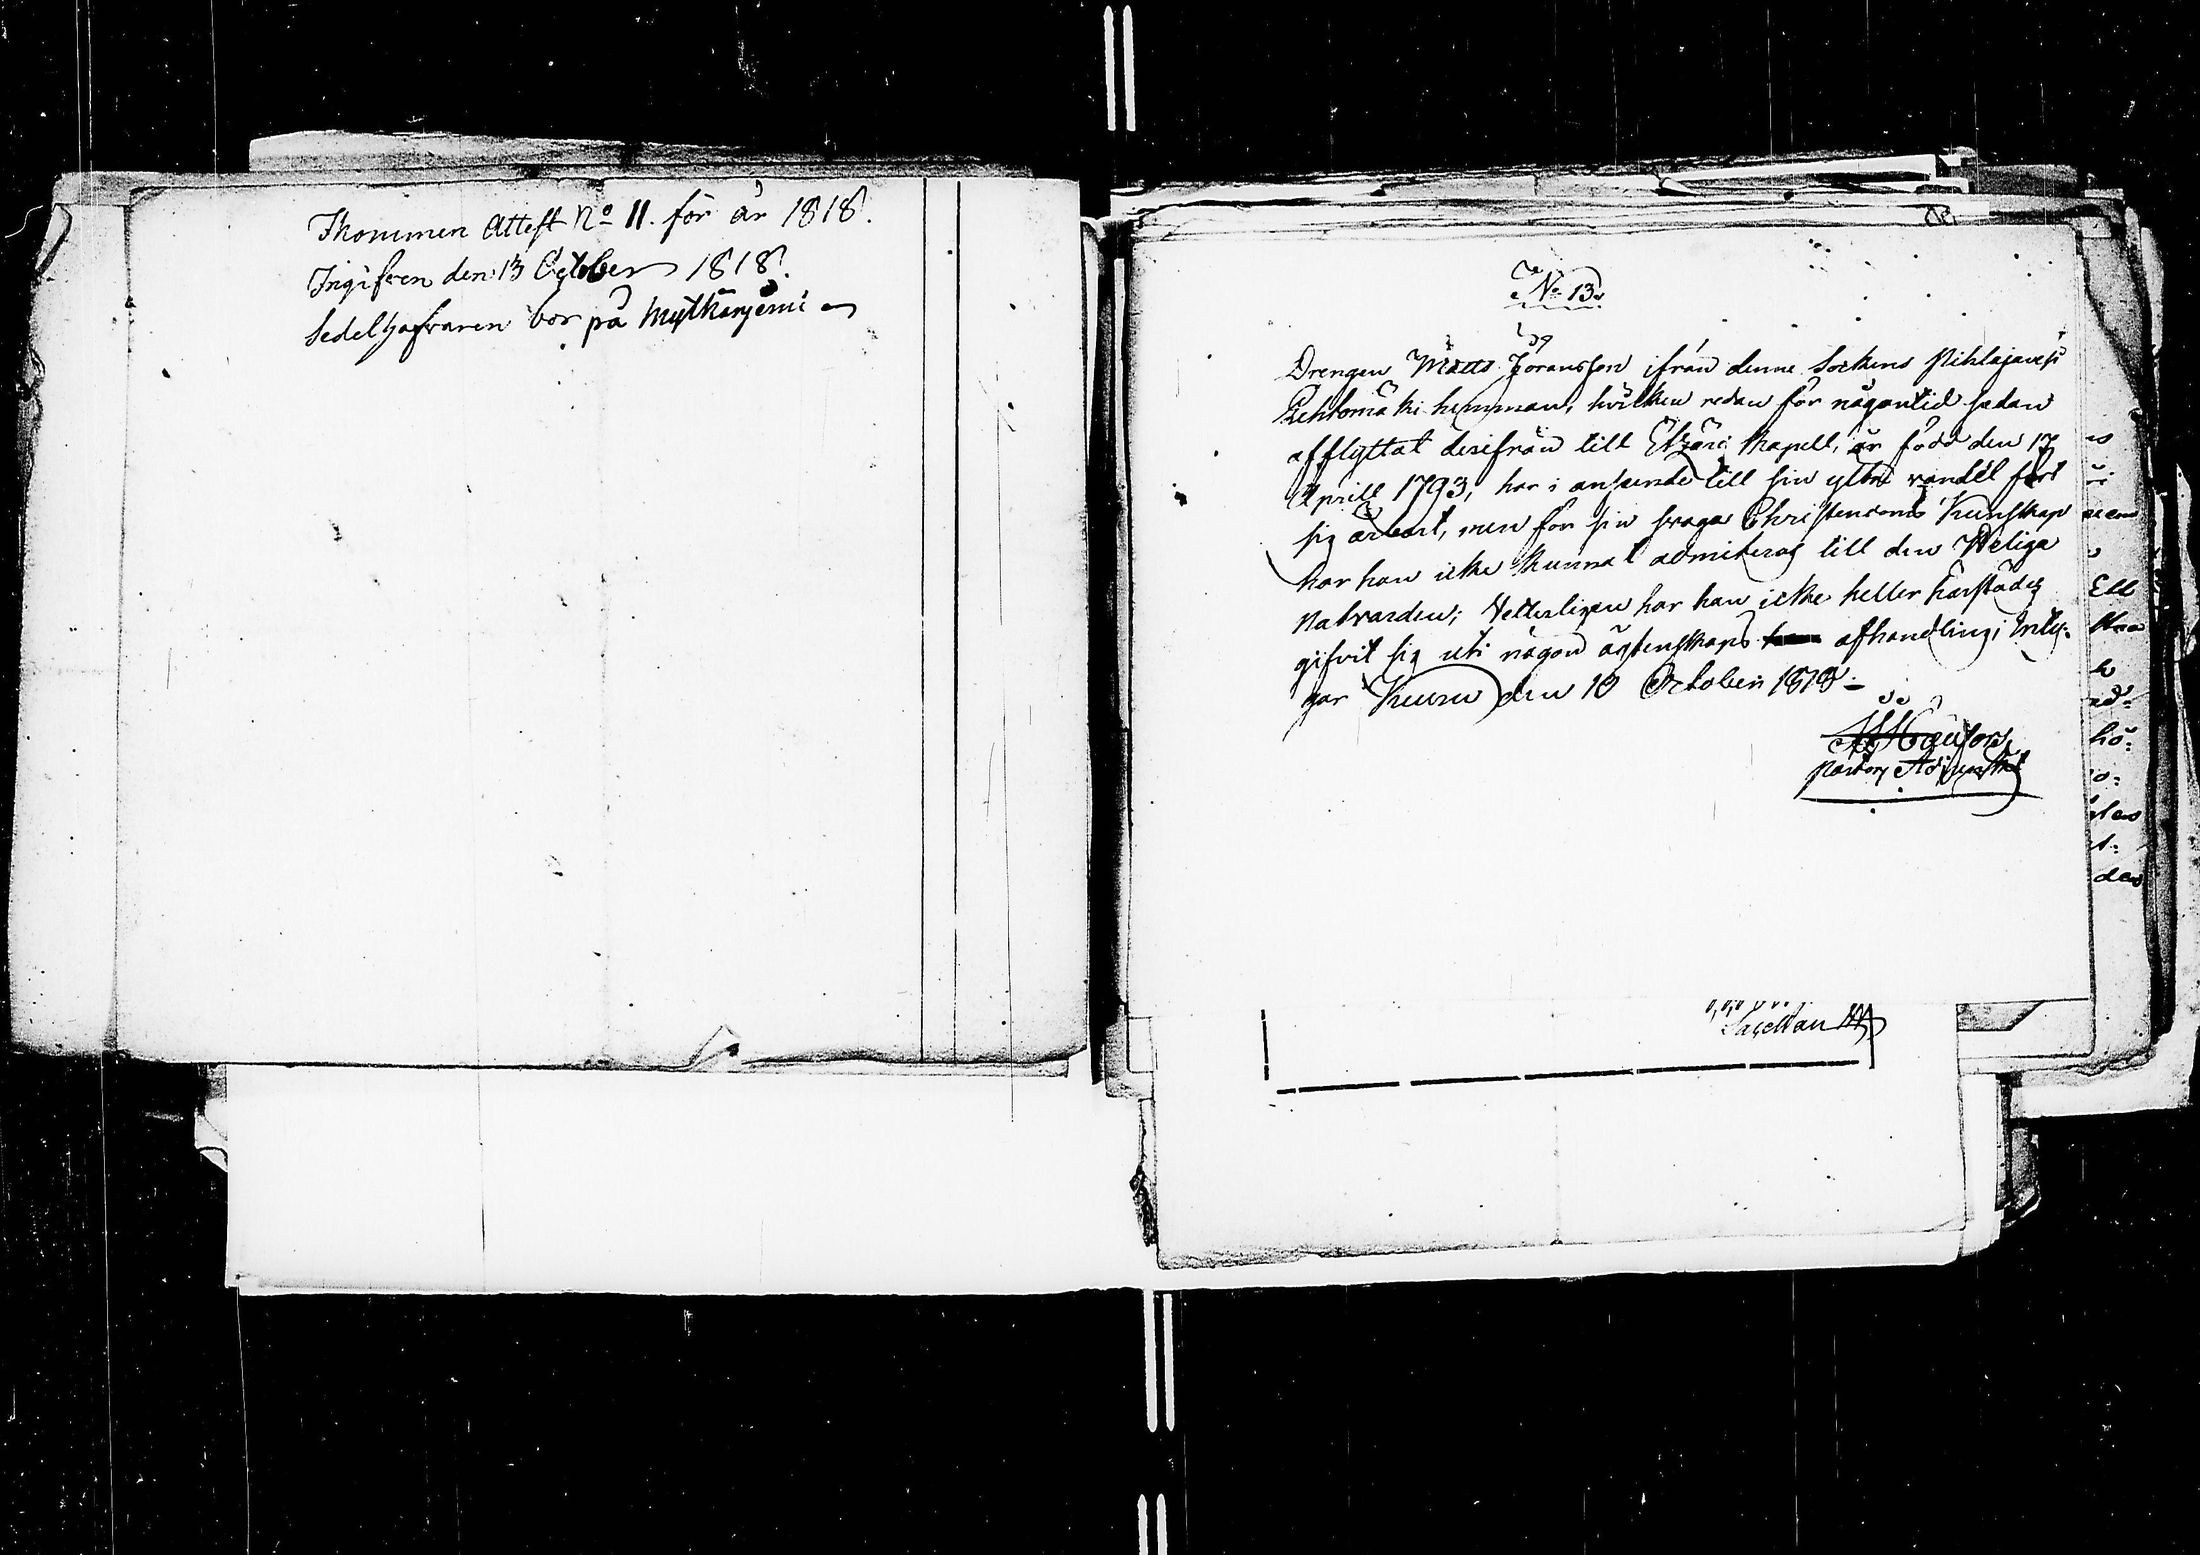 Ikommen Attest No 11. för år 1818.
Ingifven den 13 October 1818.
Sedelhafvaren bor på Myllkärjemi
No 13.
Drengen Matts Jöransson ifrån denne Sockens Pihlajavesi
Lehtomäki hemman, hvilken redan för någon tid sedan
afflyttat desifrån till Etzäri Kapell, är född den 17
Aprill 1793, har i anseende till sin yttre vandel fört
sig ärbart, men för sin svaga Christendoms Kunskap
har han icke kunnat admitteras till den Heliga
Natvarden; Vetterligen har han icke heller härstädes
gifvit sig uti någon ägtenskaps afhandling; Inty-
gar Kuru den 10 October 1818
Pastors Adjunct
Sacellan
Ell
hö:
den